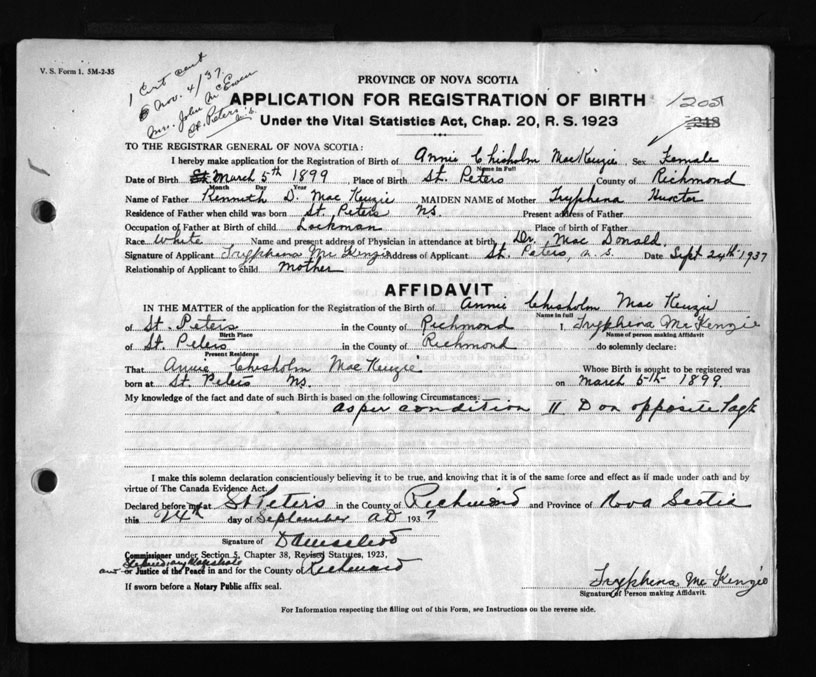 V. S. Form 1. 5M-2-35
1 Cert sent
Nov. 4/37.
Mrs. John McEwen
St. Peters
N.S.
PROVINCE OF NOVA SCOTIA
APPLICATION FOR REGISTRATION OF BIRTH
Under the Vital Statistics Act, Chap. 20, R. S. 1923
1205
248
TO THE REGISTRAR GENERAL OF NOVA SCOTIA:
I hereby make application for the Registration of Birth of Annie Chisholm MacKenzie Sex Female
Name in Full
Date of Birth March 5th 1899, Place of Birth St. Peters County of Richmond
Month Day Year
Name of Father Kenneth D. MacKenzie MAIDEN NAME of Mother Tryphena
Residence of Father when child was born St. Peters NS. Present address of Father
Occupation of Father at Birth of child Lockman Place of birth of Father
Race White Name and present address of Physician in attendance at birth Dr. MacDonald.
Signature of Applicant Tryphena McKenzie Address of Applicant St. Peters, N.S. Date Sept 24th 1937
Relationship of Applicant to child Mother
AFFIDAVIT
IN THE MATTER of the application for the Registration of the Birth of Annie Chisholm MacKenzie
Name in full
of St. Peters in the County of Richmond I, Tryphena McKenzie
Birth Place Name of person making Affidavit
of St. Peters in the County of Richmond do solemnly declare:
Present Residence
That Annie Chisholm MacKenzie Whose Birth is sought to be registered was
born at St. Peters NS. on March 5th 1899.
My knowledge of the fact and date of such Birth is based on the following Circumstances:
as per condition II D on opposite Page
I make this solemn declaration conscientiously believing it to be true, and knowing that it is of the same force and effect as if made under oath and by
virtue of The Canada Evidence Act.
Declared before me at St Peters in the County of Richmond and Province of Nova Scotia
this 24th day of September AD 1937
Signature of
Commissioner under Section 5, Chapter 38, Revised Statutes, 1923,
Stipendiary Magistrate
or Justice of the Peace in and for the County of Richmond
If sworn before a Notary Public affix seal.
Tryphena McKenzie
Signature of Person making Affidavit.
For Information respecting the filling out of this Form, see Instructions on the reverse side.